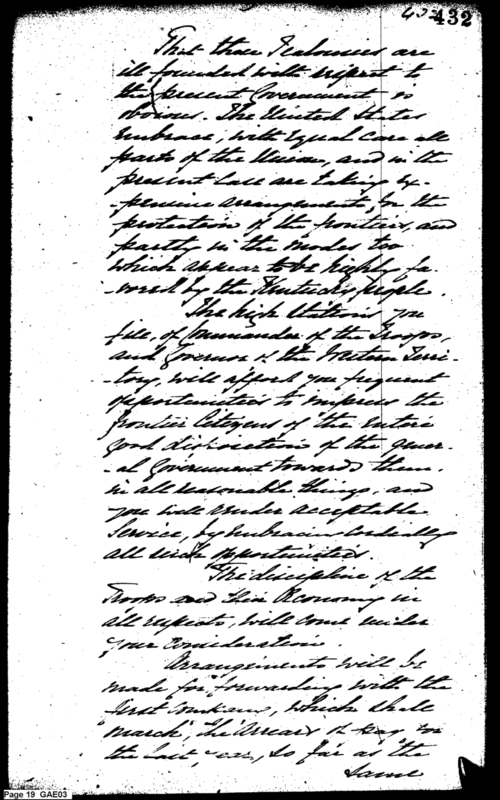 432
That these Jealousies are
ill founded with respect to
the present Government is
obvious. The United States
embrace, with equal care all
parts of the Union, and in the
present case are taking ex-
-pensive arrangements, for the
protection of the frontiers, and
partly in the modes too
which appear to be highly fa-
-vored by the Kentucky people.
The high Stations you
fill, of Commander of the Troops,
and Governor of the Western Terri-
-tory, will afford you frequent
opportunities to impress the
frontier Citizens of the entire
good disposition of the gener-
-al Government towards them,
in all reasonable things, and
you will render acceptable
Service, by embracing cordially
all such opportunities.
The discipline of the
Troops and their Oeconomy in
all respects, will come under
your consideration.
Arrangements will be
made for forwarding with the
first Company, which shall
march, the Arrears of pay, for
the last year, so far as the
same
Page 19 GAE03